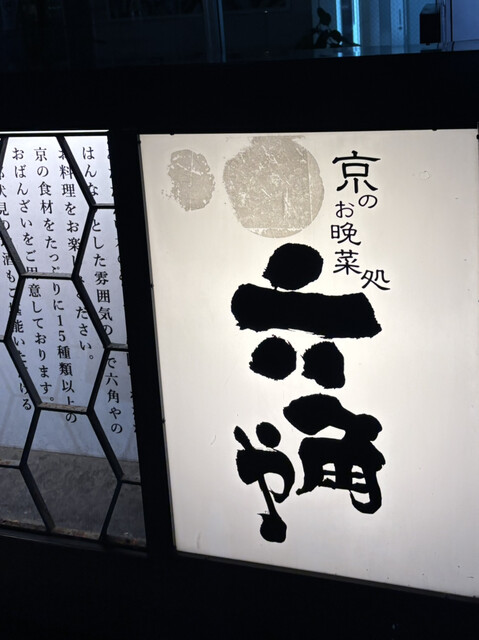 京のお晩菜処
六角や
はんなりとした雰囲気の中で六角やの
お料理をお楽しみください。
京の食材をたっぷりに15種類以上の
おばんざいをご用意しております。
伏見の
酒もご堪能いただける